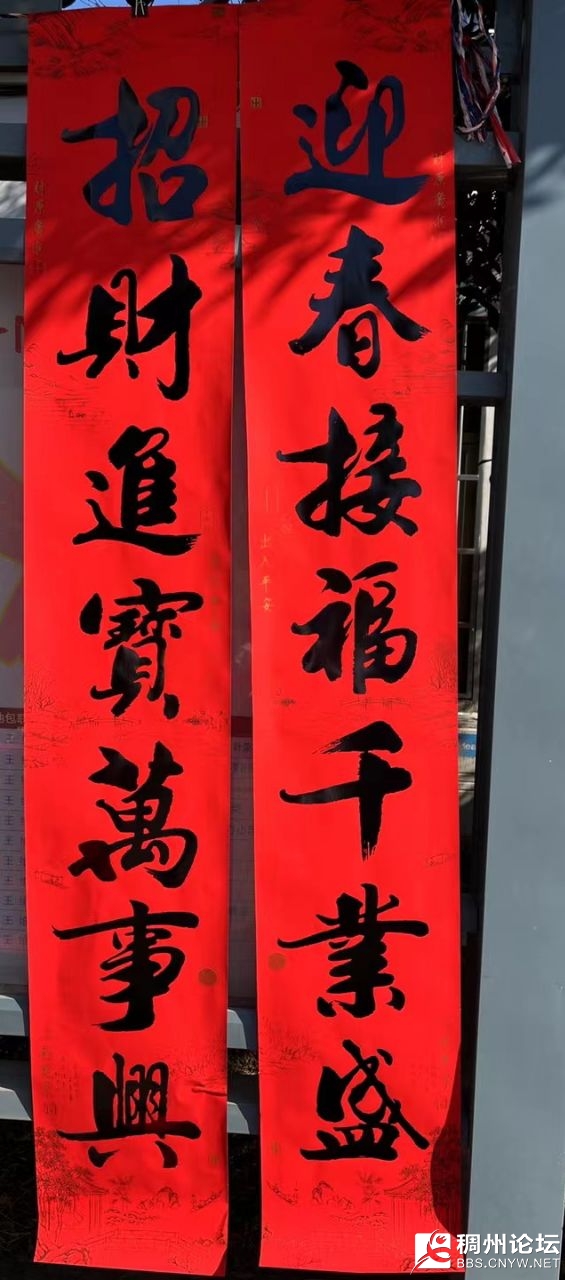 迎春接福千業盛
招財進寶萬事興
出入平安
稠州论坛
BBS.CNYW.NET